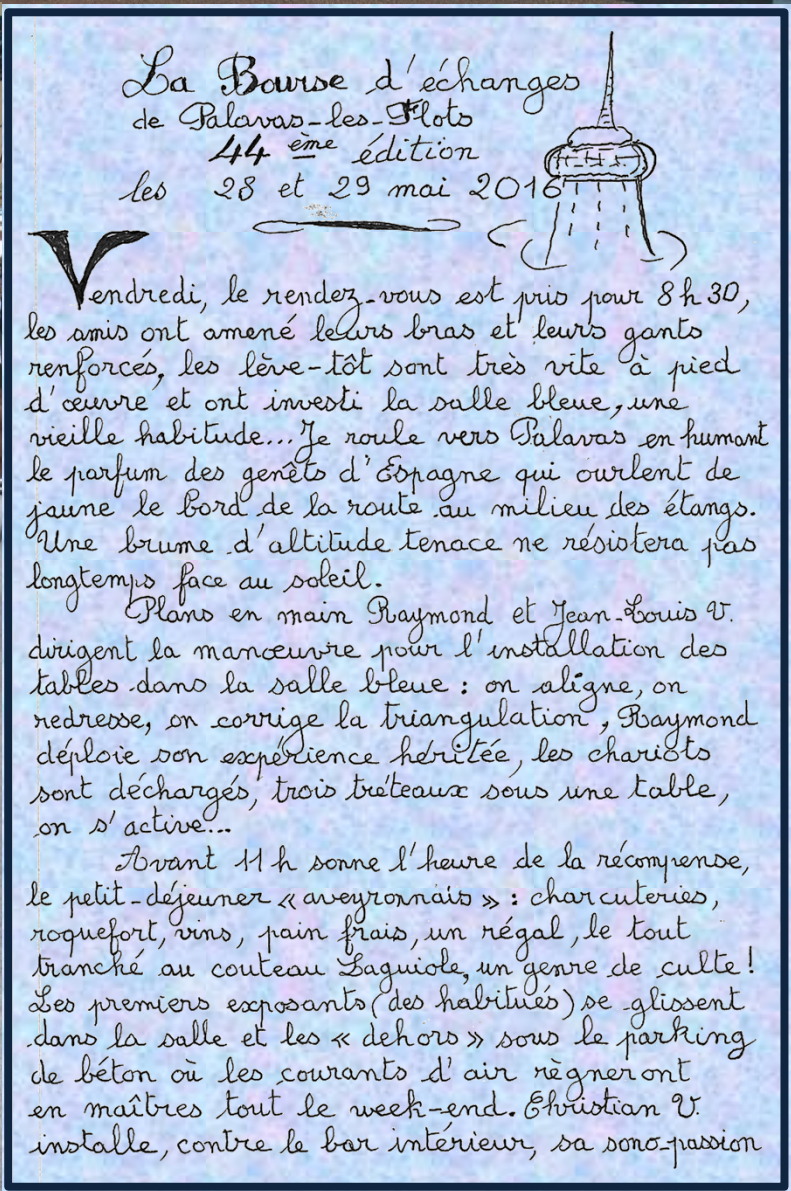 La Bourse d'échanges
de Palavas-les-Flots
44 ème édition
les 28 et 29 mai 2016
Vendredi, le rendez-vous est pris pour 8 h 30,
les amis ont amené leurs bras et leurs gants
renforcés, les lève-tôt sont très vite à pied
d'œuvre et ont investi la salle bleue, une
vieille habitude... Je roule vers Palavas en humant
le parfum des genêts d'Espagne qui ourlent de
jaune le bord de la route au milieu des étangs.
Une brume d'altitude tenace ne résistera pas
longtemps face au soleil.
Plans en main Raymond et Jean-Louis V.
dirigent la manœuvre pour l'installation des
tables dans la salle bleue : on aligne, on
redresse, on corrige la triangulation, Raymond
déploie son expérience héritée, les chariots
sont déchargés, trois tréteaux sous une table,
on s'active...
Avant 11 h sonne l'heure de la récompense,
le petit-déjeuner « aveyronnais » : charcuteries,
roquefort, vins, pain frais, un régal, le tout
tranché au couteau Laguiole, un genre de culte !
Les premiers exposants (des habitués) se glissent
dans la salle et les « dehors » sous le parking
de béton où les courants d'air règneront
en maîtres tout le week-end. Christian V.
installe, contre le bar intérieur, sa sono-passion